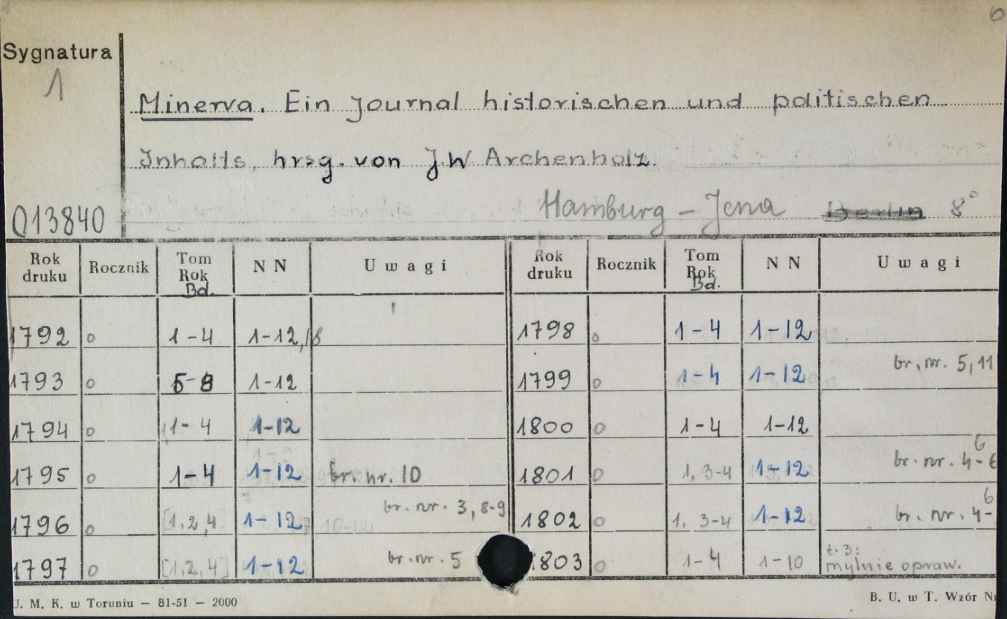 6
Sygnatura
1
Minerva. Ein Journal historischen und politischen
Inhalts, hrsg. von J.W Archenholz.
013840 Hamburg – Jena Berlin 8°
Rok druku Rocznik Tom Rok Bd. N N Uwagi Rok druku Rocznik Tom Rok Bd. N N Uwagi
1792 o 1-4 1-12, 1798 o 1-4 1-12
1793 o 5-8 1-12 1799 o 1-4 1-12 br. nr. 5, 11
1794 o 1-4 1-12 1800 o 1-4 1-12
1795 o 1-4 1-12 br. nr. 10 1801 o 1, 3-4 1-12 br. nr. 4-6 6
1796 o [1,2,4 1-12 br. nr. 3, 8-9 1802 o 1, 3-4 1-12 br. nr. 4- 6
1797 o [1,2,4] 1-12 br. nr. 5 1803 o 1-4 1-10 t. 3: mylnie opraw.
U. M. K. w Toruniu — 81-51 — 2000 B. U. w T. Wzór Nr